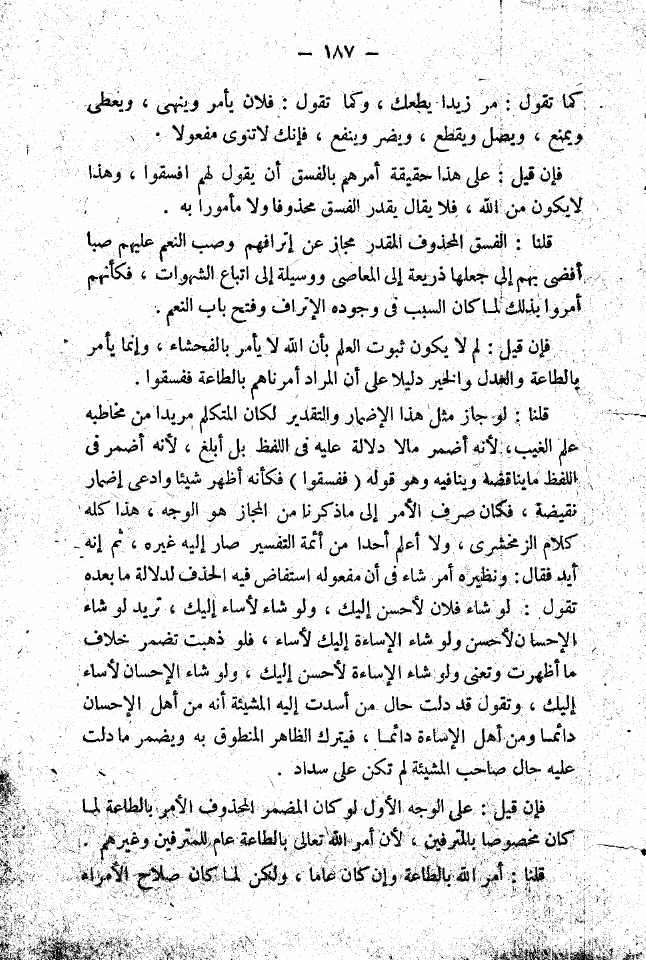 — ١٨٧ —
كما تقول : مر زيدا يطعك ، وكما تقول : فلان يأمر وينهى ، ويعطى
ويمنع ، ويصل ويقطع ، ويضر وينفع ، فإنك لاتنوى مفعولا .
فإن قيل : على هذا حقيقة أمرهم بالفسق أن يقول لهم افسقوا ، وهذا
لايكون من الله ، فلا يقال يقدر الفسق محذوفا ولا مأمورا به .
قلنا : الفسق المحذوف المقدر مجاز عن إترافهم وصب النعم عليهم صبا
أفضى بهم إلى جعلها ذريعة إلى المعاصى ووسيلة إلى اتباع الشهوات ، فكأنهم
أمروا بذلك لما كان السبب فى وجوده الإتراف وفتح باب النعم .
فإن قيل : لم لا يكون ثبوت العلم بأن الله لا يأمر بالفحشاء ، وإنما يأمر
بالطاعة والعدل والخير دليلا على أن المراد أمرناهم بالطاعة ففسقوا .
قلنا : لو جاز مثل هذا الإضمار والتقدير لكان المتكلم مريدا من مخاطبه
علم الغيب، لأنه أضمر مالا دلالة عليه فى اللفظ بل أبلغ ، لأنه أضمر فى
اللفظ مايناقضه وينافيه وهو قوله ( ففسقوا ) فكأنه أظهر شيئا وادعى إضمار
نقيضة ، فكان صرف الأمر إلى ماذكرنا من المجاز هو الوجه ، هذا كله
كلام الزمخشرى ، ولا أعلم أحدا من أئمة التفسير صار إليه غيره ، ثم إنه
أيد فقال: ونظيره أمر شاء فى أن مفعوله استفاض فيه الحذف لدلالة ما بعده
تقول : لو شاء فلان لأحسن إليك ، ولو شاء لأساء إليك ، تريد لو شاء
الإحسان لأحسن ولو شاء الإساءة إليك لأساء ، فلو ذهبت تضمر خلاف
ما أظهرت وتعنى ولو شاء الإساءة لأحسن إليك ، ولو شاء الإحسان لأساء
إليك ، وتقول قد دلت حال من أسدت إليه المشيئة أنه من أهل الإحسان
دائما ومن أهل الإساءة دائما ، فيترك الظاهر المنطوق به ويضمر ما دلت
عليه حال صاحب المشيئة لم تكن على سداد .
فإن قيل : على الوجه الأول لو كان المضمر المحذوف الأمر بالطاعة لما
كان مخصوصا بالمترفين ، لأن أمر الله تعالى بالطاعة عام للمترفين وغيرهم .
قلنا : أمر الله بالطاعة وإن كان عاما ، ولكن لما كان صلاح الأمراء